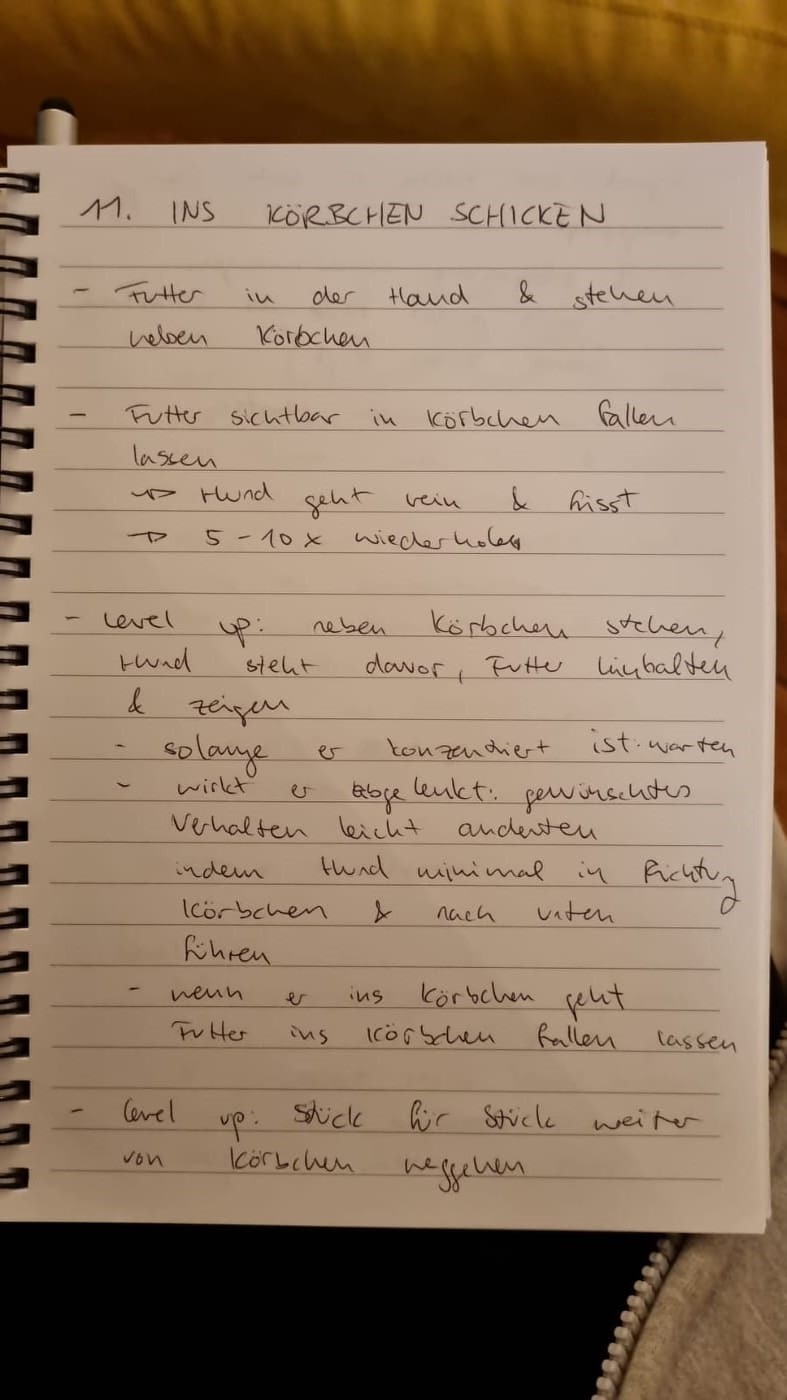 11. INS KÖRBCHEN SCHICKEN
- Futter in der Hand & stehen
neben Körbchen
- Futter sichtbar in Körbchen fallen
lassen
→ Hund geht rein & frisst
→ 5-10x wiederholen
- Level up: neben Körbchen stehen,
Hund steht davor, Futter hinhalten
& zeigen
- solange er konzentriert ist: warten
- wirkt er abgelenkt: gewünschtes
Verhalten leicht andeuten
indem Hund minimal in Richtung
Körbchen & nach unten
führen
- wenn er ins Körbchen geht
Futter ins Körbchen fallen lassen
- Level up: Stück für Stück weiter
von Körbchen weggehen